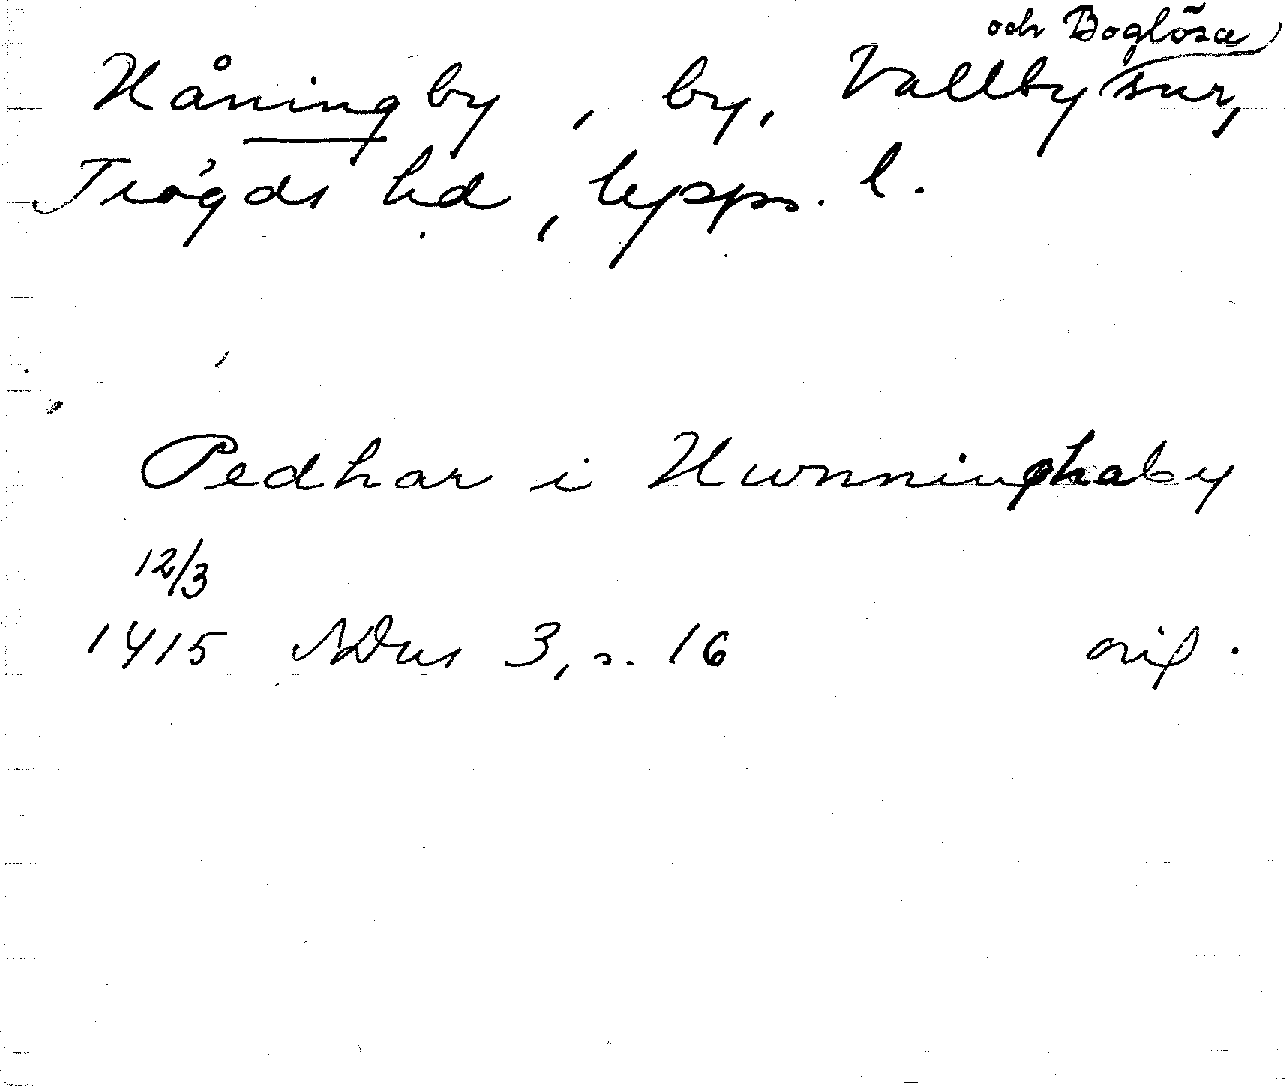 och Boglösa
Håningby, by, Vallby snr,
Trögds hd, Upps. l.
Pedhar i Hwnninghaby
12/3
1415 NDus 3, s. 16 orig.